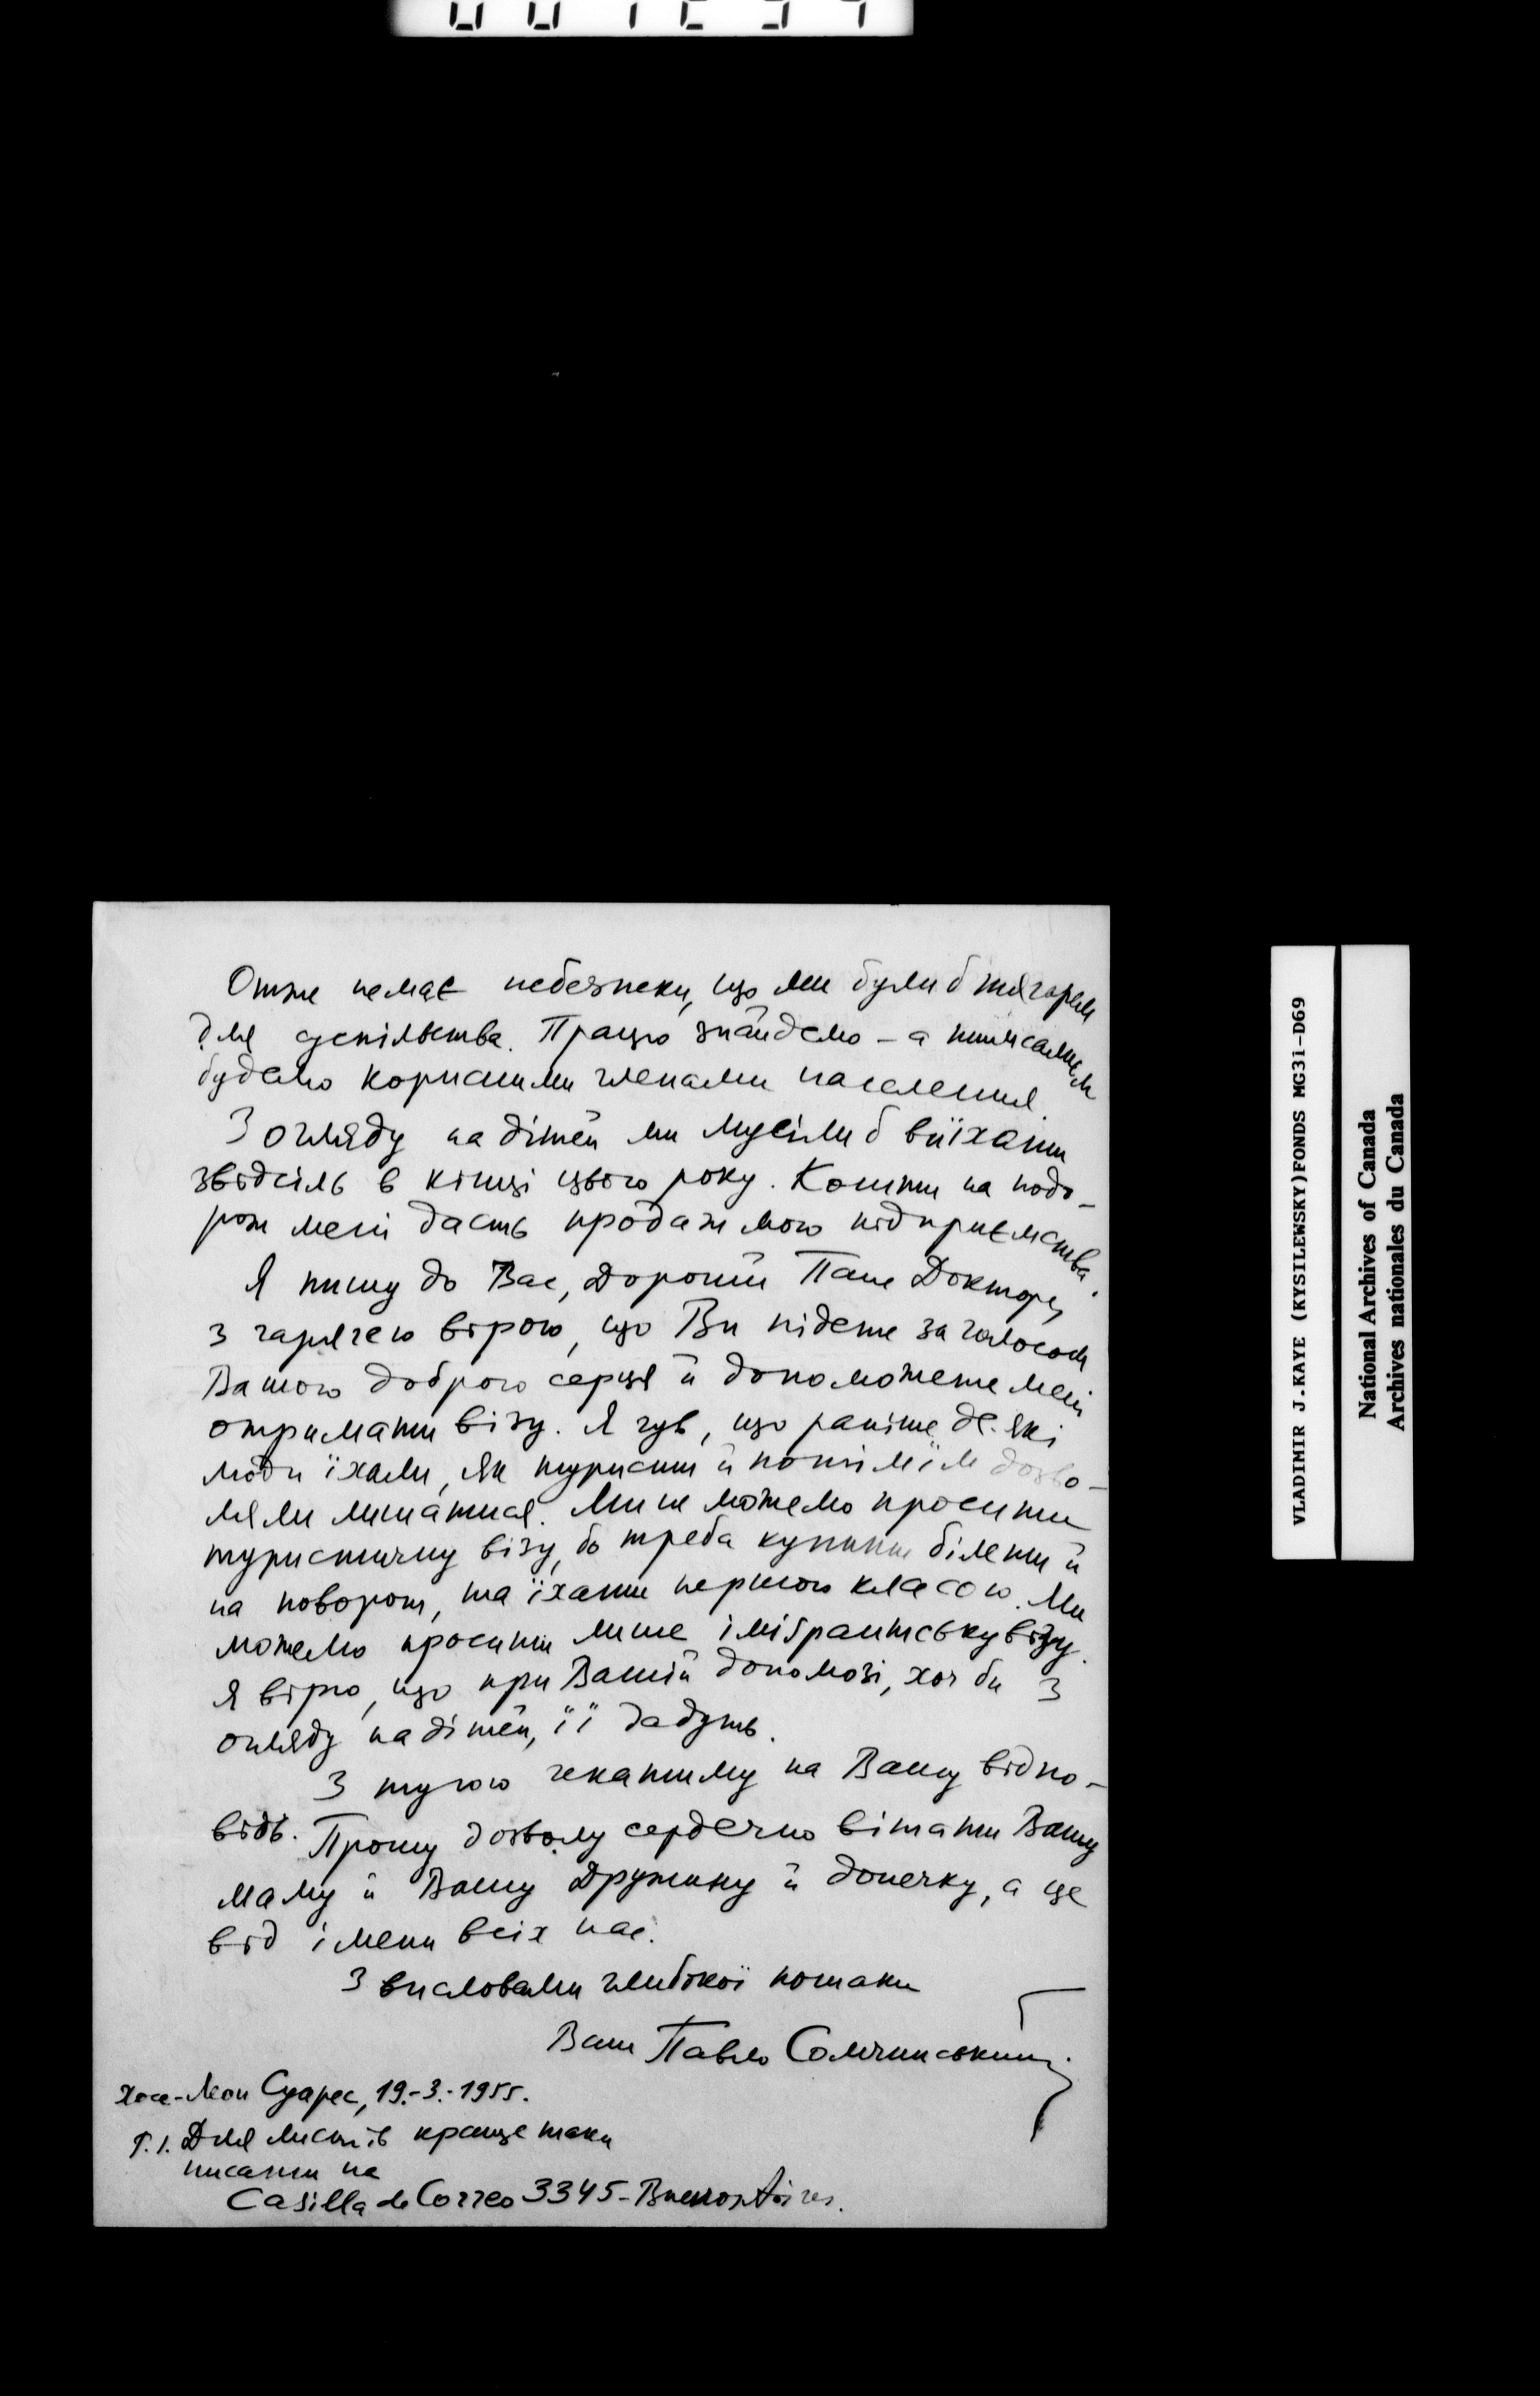 Отже немає небезпеки, що ми були б тягарем
для суспільства. Працю знайдемо – а тим самим
будемо корисними членами населення.
З огляду на дітей ми мусіли б виїхати
звідсіль в кінці цього року. Кошти на подо-
рож мені дасть продаж мого підприємства.
Я пишу до Вас, Дорогий Пане Докторе,
з гарячею вірою, що Ви підете за голосом
Вашого доброго серця й допоможете мені
отримати візу. Я чув, що раніше де-які
люди їхали, як туристи й потім їм дозво-
ляли лишатися. Ми не можемо просити
туристичну візу, бо треба купити білети й
на поворот, та їхати першою класою. Ми
можемо просити лише іміґрантську візу.
Я вірю, що при Вашій допомозі, хоч би з
огляду на дітей, її дадуть.
З тугою чекатиму на Вашу відпо-
відь. Прошу дозволу сердечно вітати Вашу
Маму й Вашу Дружину й донечку, а це
від імени всіх нас.
З висловами глибокої пошани
Ваш Павло
Хосе-Леон Суарес, 19.-3.-1955.
Для листів краще таки
писати на
Casilla de Correo 3345-Buenos Aires.
VLADIMIR J.KAYE (KYSILEWSKY)FONDS MG31-D69
National Archives of Canada
Archives nationales du Canada